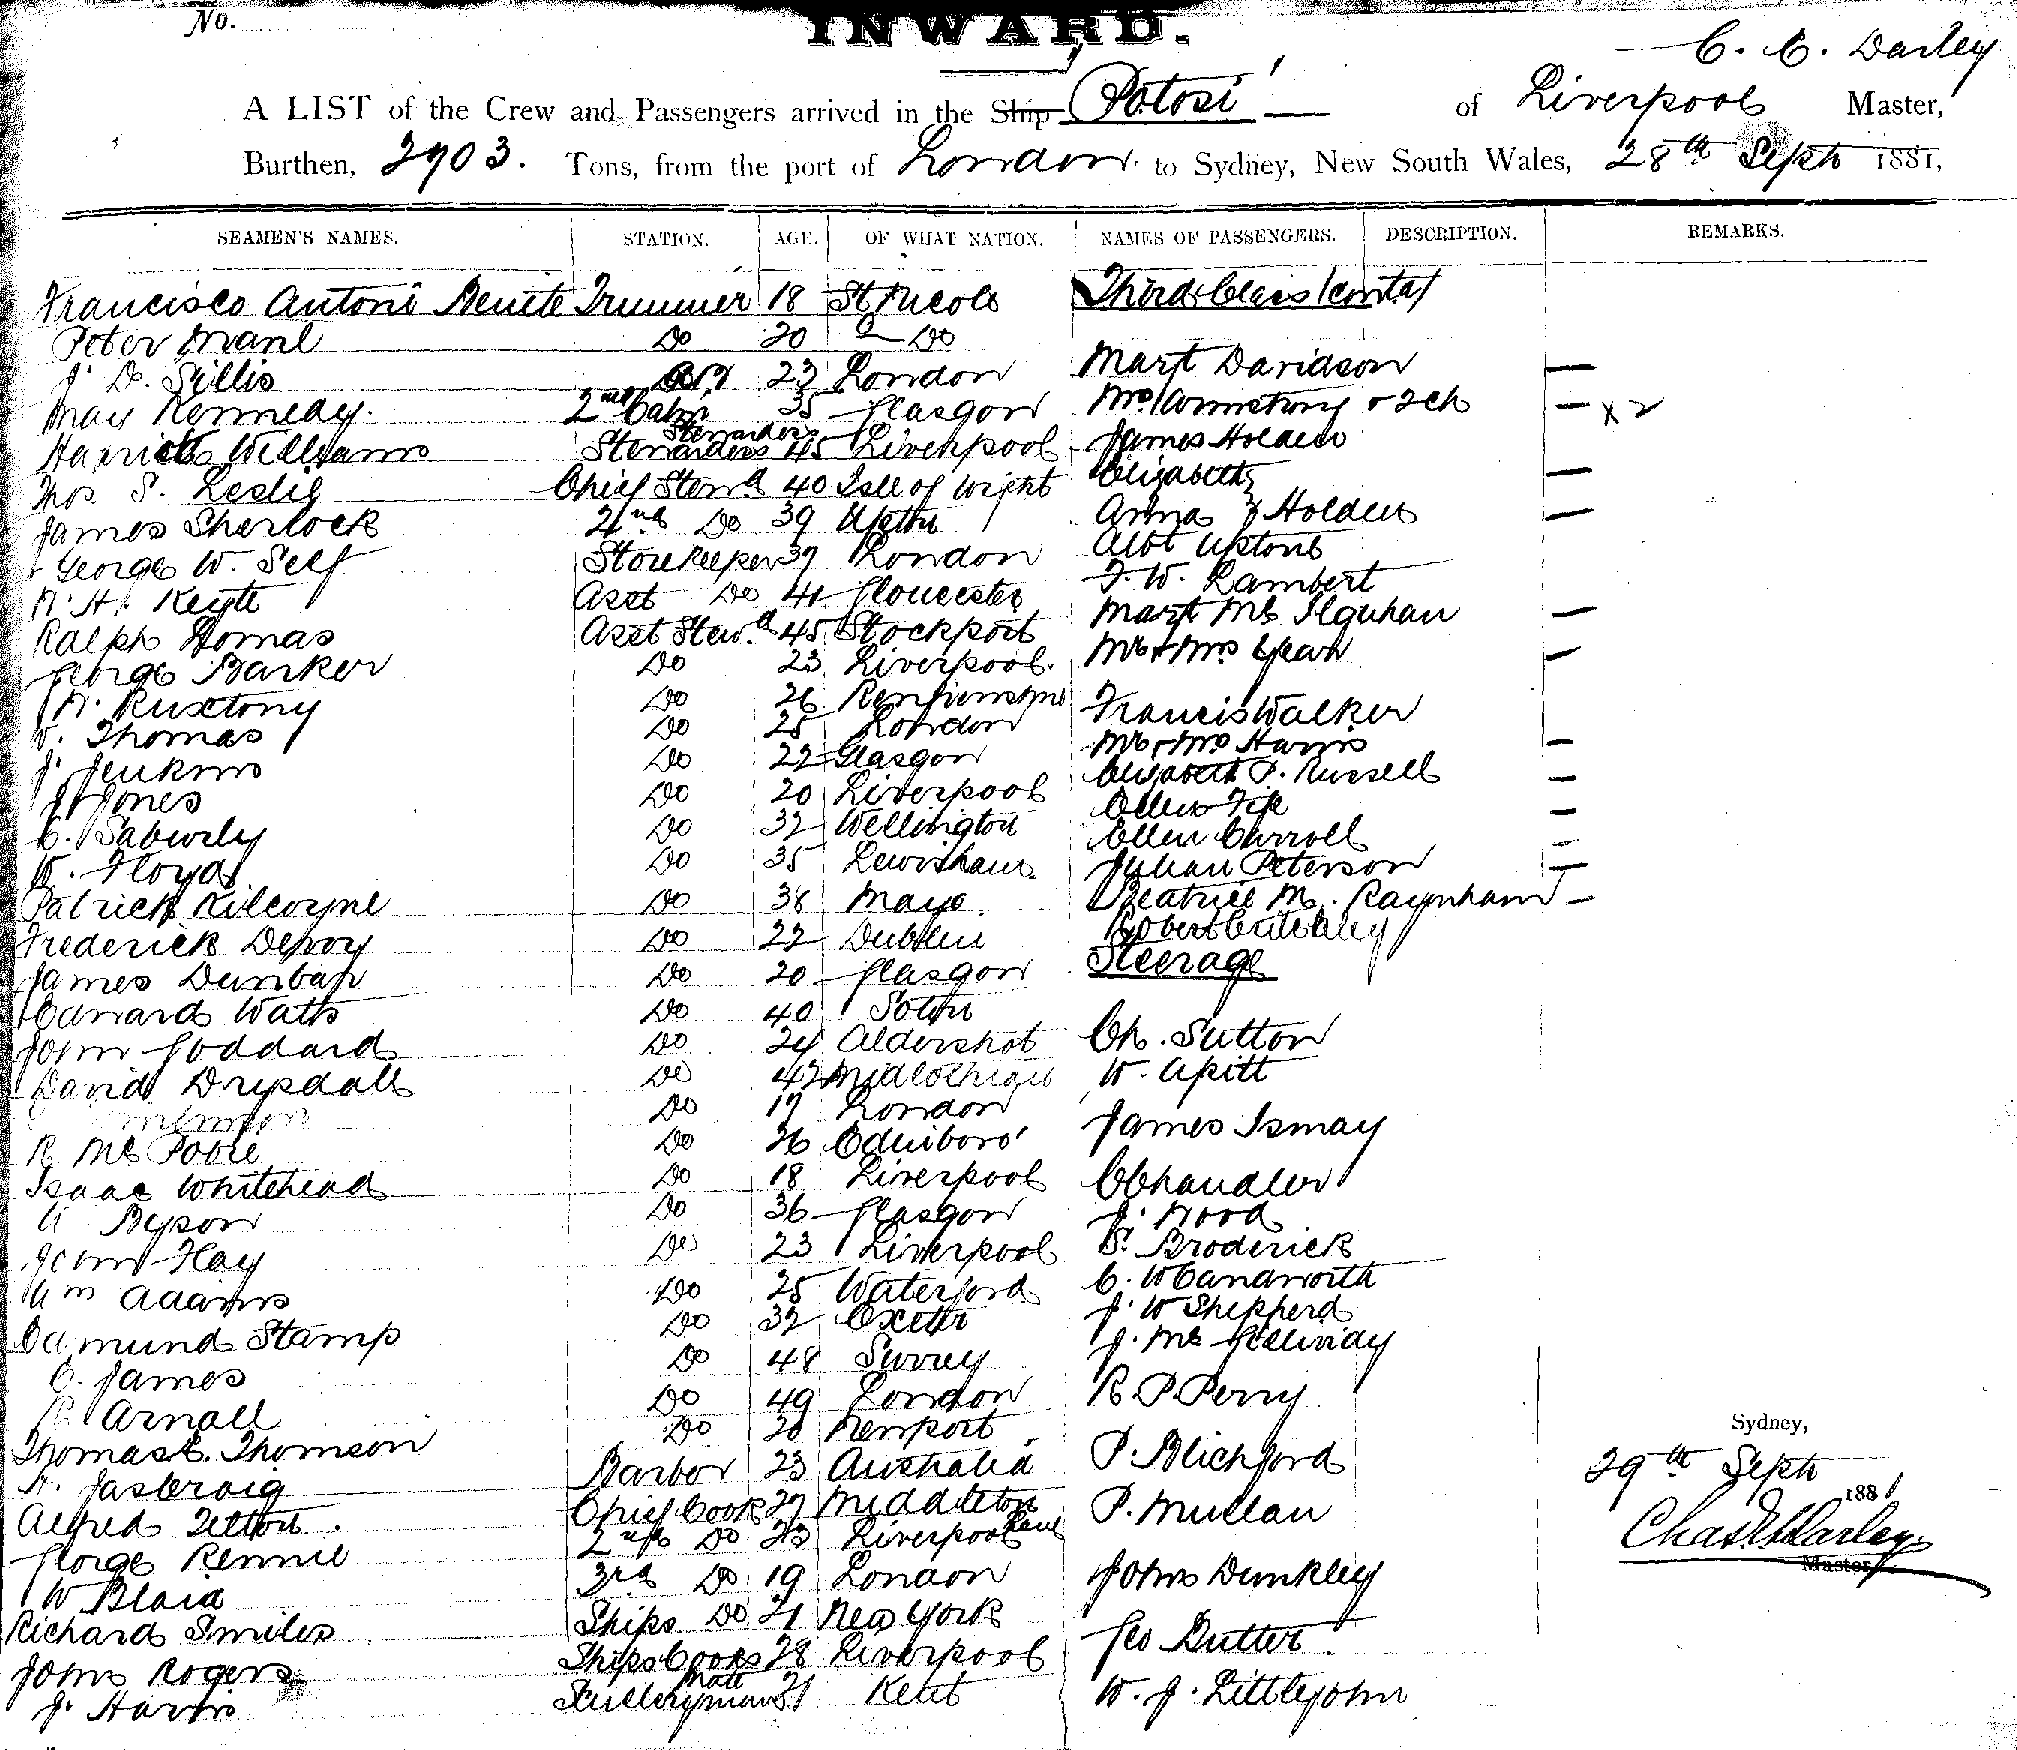 No.
INWARD.
C. C. Darley
A LIST of the Crew and Passengers arrived in the Ship Potosi of Liverpool Master,
Burthen, 2903. Tons, from the port of London to Sydney, New South Wales, 28th Sept 1881,
SEAMEN'S NAMES. STATION. AGE. OF WHAT NATION. NAMES OF PASSENGERS. DESCRIPTION. REMARKS.
Francisco Antoni Benite Trummer 18 St Nicola Third Class (contd)
Peter 20 Do
J. D. Sillis 23 London Mart Davidson —
May Kennedy. 2nd Cabin Stewardess 35 Glasgow Mrs Armstrong + 2 ch — x 2
Harriett Williams Stewardess 45 Liverpool James Holden
Thos S. Leslie Chief Stewd 40 Isle of Wight Elizabeth —
James Sherlock 2nd Do 39 Upton Anna } Holden —
George W. Self Storekeeper 37 London Albt Uptone
R. H. Keyte Asst Do 41 Gloucester F. W. Lambert
Ralph Homas Asst Stewd 45 Stockport Mart Mc —
George Barker Do 23 Liverpool. Mr + Mrs Yean —
Ruxtony Do 26 Francis Walker
W. Thomas Do 25 London Mr + Mrs Harris —
J. Jenkins Do 22 Glasgow Elizabeth P. Russell —
J. Jones Do 20 Liverpool Ellen —
C. Do 32 Wellington Ellen Carroll —
W. Floyd Do 35 Lewisham Julian Peterson —
Patrick Kilcoyne Do 38 Mayo. Beatrice M. Raynham —
Frederick Devoy Do 22 Dublin Robert
James Dunbar Do 20 Glasgow Steerage
Edward Watts Do 40 Soton
John Goddard Do 24 Aldershot Ch. Sutton
David Drysdall Do 42 Midlothian W. Apitt
Do 17 London
R Mc Do 26 Edinboro' James Ismay
Isaac Whitehead Do 18 Liverpool C Chandler
Byson Do 36 Glasgow J. Wood
John Hay Do 23 Liverpool Broderick
Wm Adams Do 25 Waterford C. W Candworth
Edmund Stamp Do 32 Exeter J. W Shepperd
James Do 48 Surrey J. Mc
Arnall Do 49 London R P Perry
Thomas E. Thomson Do 20 Newport
Jas Craig Barber 23 Australia P. Blichford
Alfred Tilton. Chief Cook 27 Middleton P. Mullan
George Rennie 2nd Do 23 Liverpool
W Blaid 3rd Do 19 London John Dunkley
Richard Smiles Ships Do 21 New York Geo Dutter.
John Rogers Ships Cooks Mate 28 Liverpool
J. Harris Scullery man 21 Kent W. J. Littlejohn
Sydney,
29th Sept
1881
Chas Darley
Master